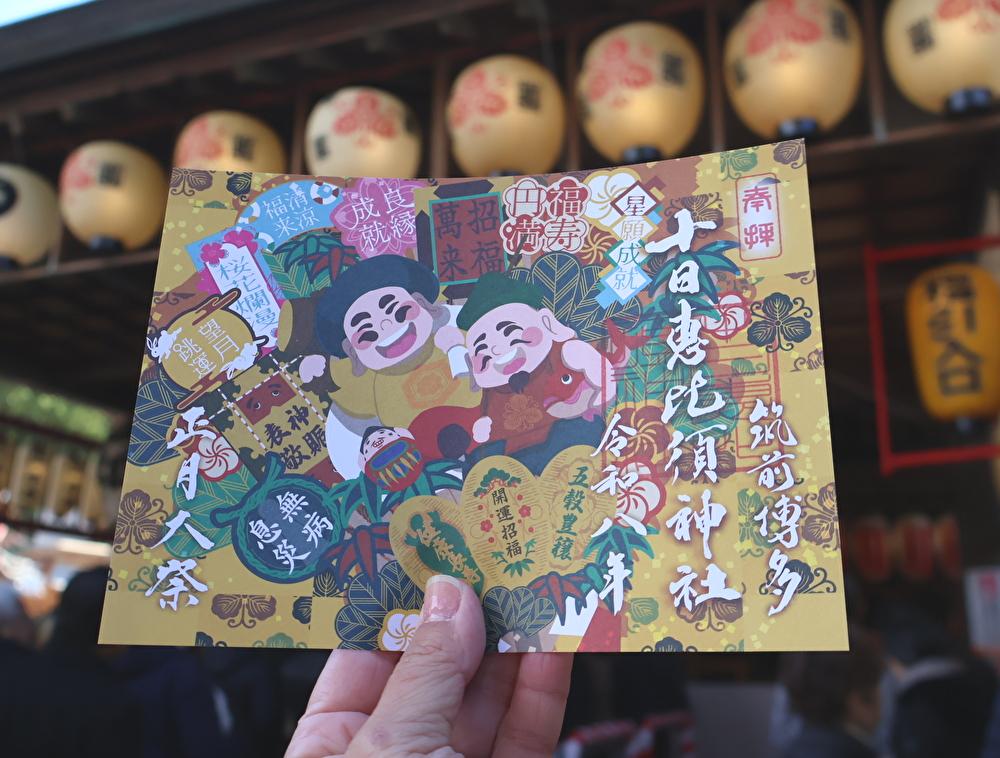 奉拝
筑前博多
十日恵比須神社
令和八年
正月大祭
星願成就
福寿
円満
招福
萬来
良縁
成就
清涼
福来
桜花爛漫
望月
跳運
神賑
敬喪
無病
息災
開運招福
五穀皇穣
福引入口